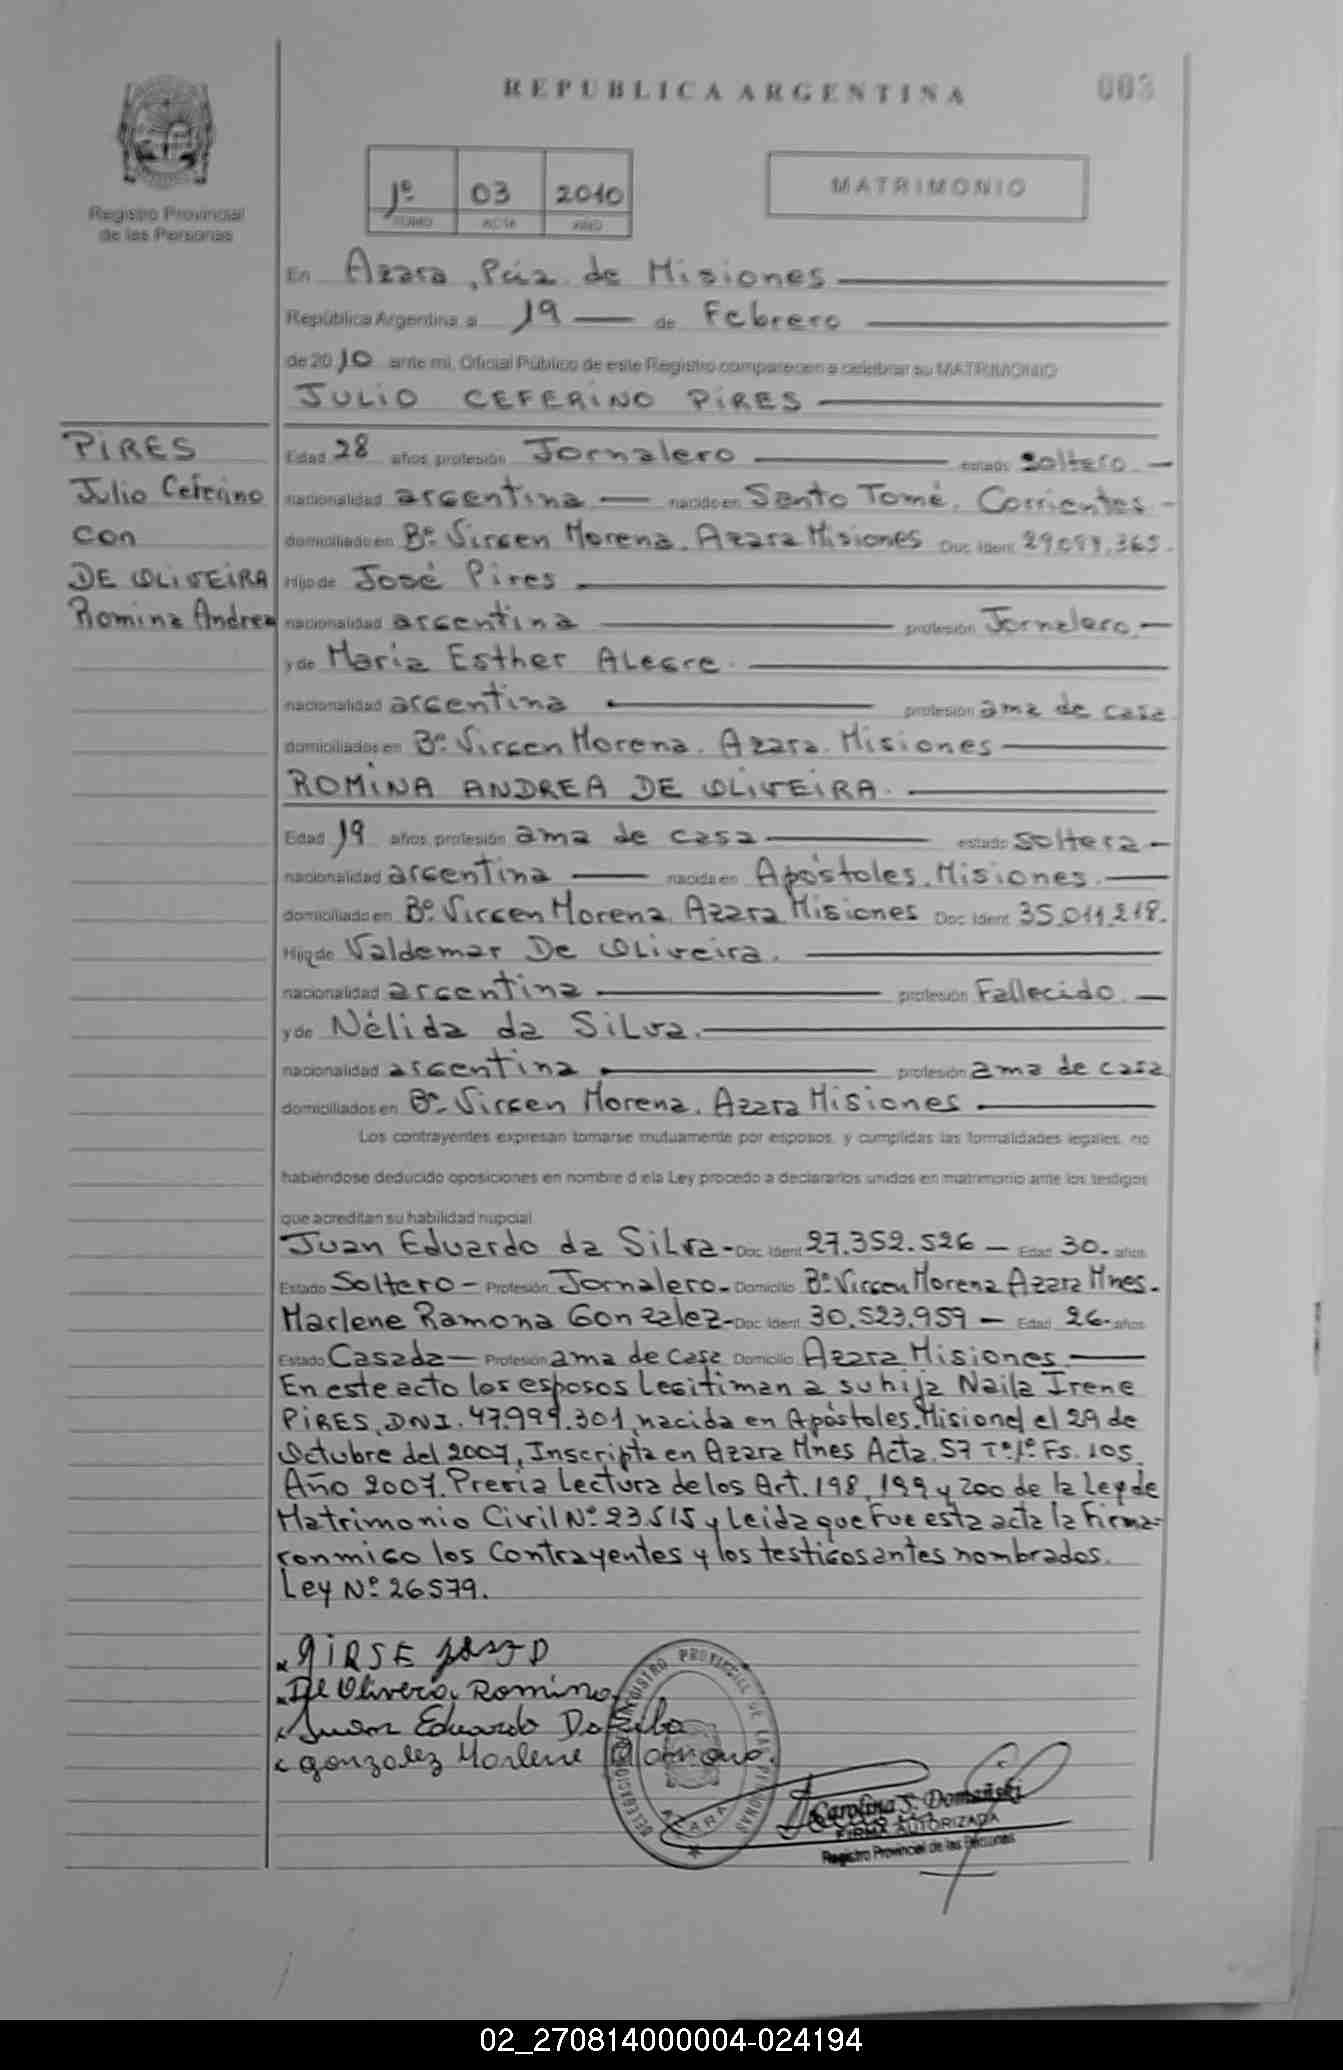 REPUBLICA ARGENTINA
003
Registro Provincial
de las Personas
1º 03 2010
TOMO ACTA AÑO
MATRIMONIO
En Azara, Pcia. de Misiones
República Argentina, a 19 de Febrero
de 2010 ante mi, Oficial Público de este Registro comparecen a celebrar su MATRIMONIO
JULIO CEFERINO PIRES
PIRES
Julio Ceferino
con
DE OLIVEIRA
Romina Andrea
Edad 28 años, profesión Jornalero estado Soltero
nacionalidad argentina nacido en Santo Tomé, Corrientes
domiciliado en Bº. Virgen Morena. Azara Misiones Doc. Ident.
Hijo de José Pires
nacionalidad argentina profesión Jornalero
y de Maria Esther Alegre
nacionalidad argentina profesión ama de casa
domiciliados en Bº. Virgen Morena. Azara. Misiones
ROMINA ANDREA DE OLIVEIRA.
Edad 19 años, profesión ama de casa estado soltera
nacionalidad argentina nacida en Apóstoles. Misiones.
domiciliado en Bº. Virgen Morena. Azara Misiones Doc. Ident. 35.011.218.
Hijo de Valdemar De Oliveira.
nacionalidad argentina profesión Fallecido
y de Nélida da Silva.
nacionalidad argentina profesión ama de casa
domiciliados en Bº. Virgen Morena. Azara Misiones
Los contrayentes expresan tomarse mutuamente por esposos, y cumplidas las formalidades legales, no
habiéndose deducido oposiciones en nombre d ela Ley procedo a declararlos unidos en matrimonio ante los testigos
que acreditan su habilidad nupcial
Juan Eduardo da Silva - Doc. Ident. 27.352.526 - Edad 30. años
Estado Soltero - Profesión Jornalero - Domicilio Bº Virgen Morena Azara Mnes.
Marlene Ramona Gonzalez - Doc. Ident. 30.523.959 - Edad 26 - años
Estado Casada - Profesión ama de casa Domicilio Azara Misiones
En este acto los esposos legitiman a su hija Naila Irene
PIRES, DNI. 47.999.301, nacida en Apóstoles. Misiones el 29 de
Octubre del 2007, Inscripta en Azara Mnes Acta. 57 Tº.1º. Fs. 105.
Año 2007. Previa Lectura de los Art. 198, 199 y 200 de la Ley de
Matrimonio Civil Nº. 23.515 y leida que fue esta acta la firma-
ron migo los Contrayentes y los testigos antes nombrados.
Ley Nº. 26579.
De Olivera, Romina
Juan Eduardo Da Silba
gonzalez Marlene Ramona.
DELEGACION REGISTRO PROVINCIAL DE LAS PERSONAS
AZARA
Carolina S. Domañski
FIRMA AUTORIZADA
Registro Provincial de las Personas
02_270814000004-024194